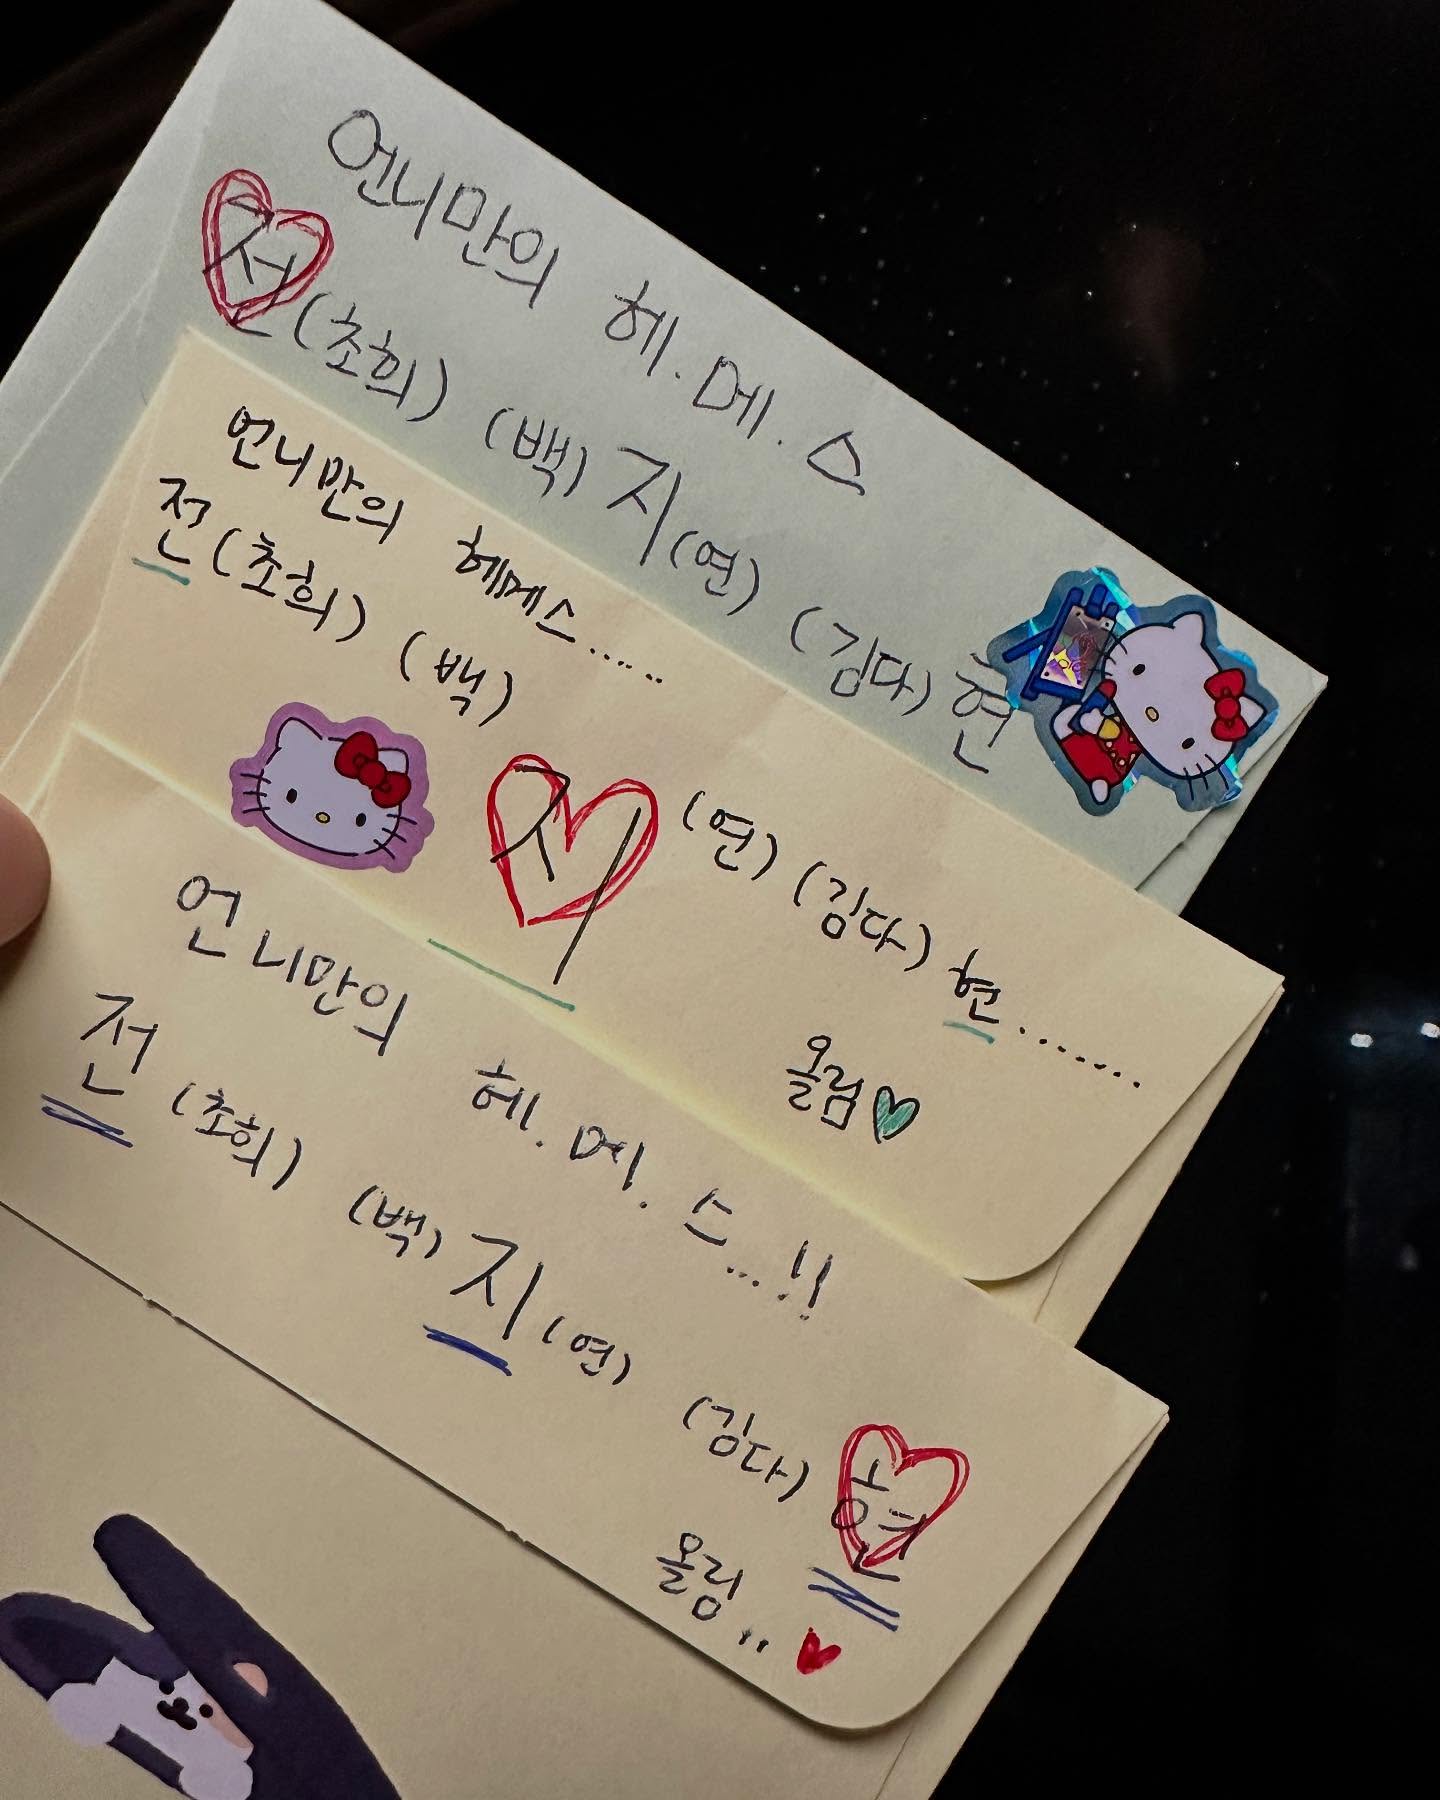 언니만의 헤.메.스
전(초희) (백)지(연) (김다)현
언니만의 헤메스.....
전(초희) (백)지(연)(김다)현.......
올림♥
언니만의 헤.메.스...!!
전(초희) (백)지(연) (김다)현
올림..♥